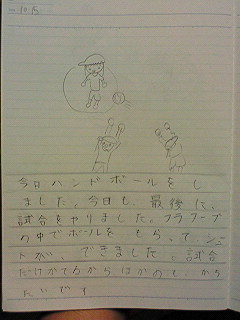 一10月
今日ハンドボールをし
ました。今日も、最後に、
試合をやりました。フラフープ
の中でボールを、もらって、シュー
トが、できました。試合
だけがてるからほかのも かち
たいです